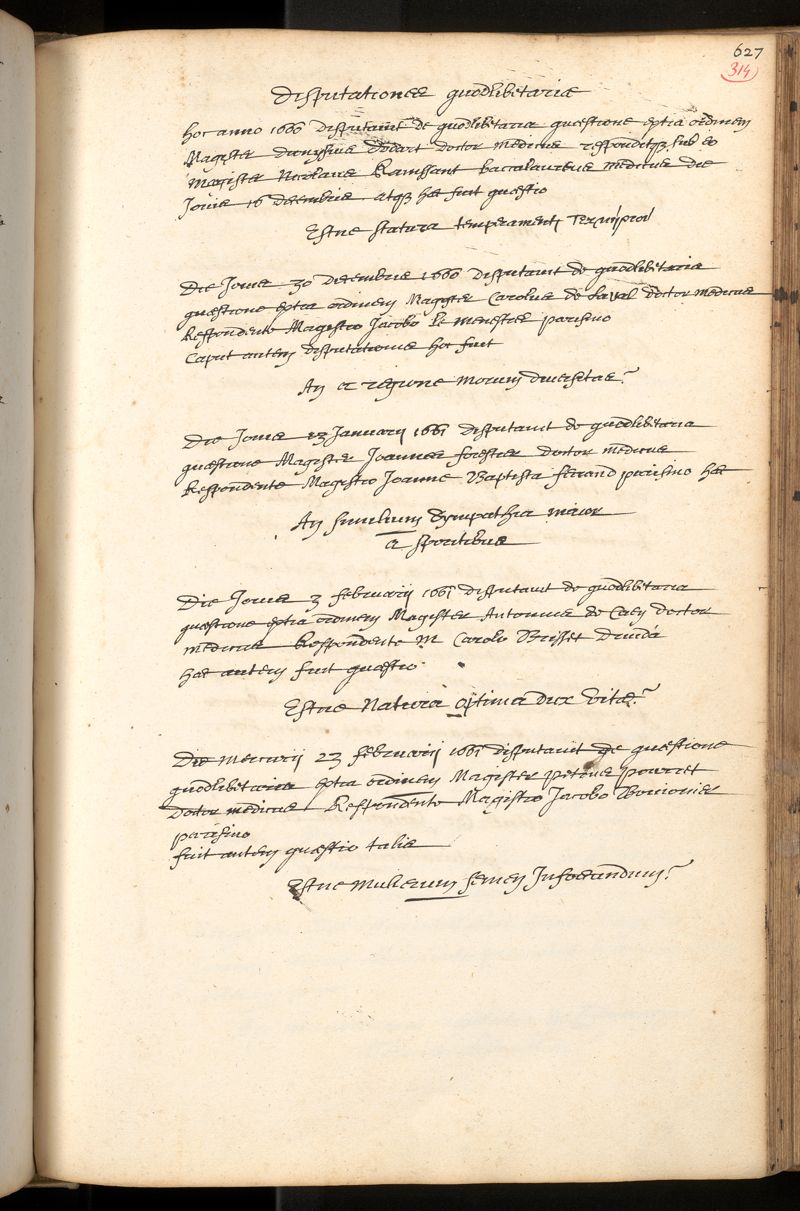 627
314
Disputationes quodlibetariæ
hoc anno 1660 disputavit de quodlibetaria quæstione extra ordinem
Magister dionysius dodart doctor medicus responditq; sub eo
magister Nicolaus Rainssant baccalaureus medicus die
Jovis 16 decembris. atq; hæc fuit quæstio
Estne statura temperamenti
Die Jovis 30 Decembris 1660 disputavit de quodlibetaria
quæstione extra ordinem Magister Carolus de Laval doctor medicus
Respondente Magistro Jacobo le menestrel parisino
Caput autem disputationis hoc fuit
An a regione morum diversitas?
Die Jovis 13 Januarij 1661 disputavit de quodlibetaria
quæstione Magister Joannes forestier doctor medicus
Respondente Magistro Joanne Baptista ferrand parisino hæc
An similium Sympathia maior
a spiritibus
Die Jovis 3 februarij 1661 disputavit de quodlibetaria
quæstione extra ordinem Magister Antonius de Caen doctor
medicus Respondente M. Carolo Brisset
hæc autem fuit quæstio
Estne Natura optima dux vitæ?
Die mercurij 23 februarij 1661 disputavit de quæstione
quodlibetaria extra ordinem Magister petrus pourret
doctor medicus Respondente Magistro Jacobo
parisino
fuit autem quæstio talis
Estne mulierum semen Infœcundum?